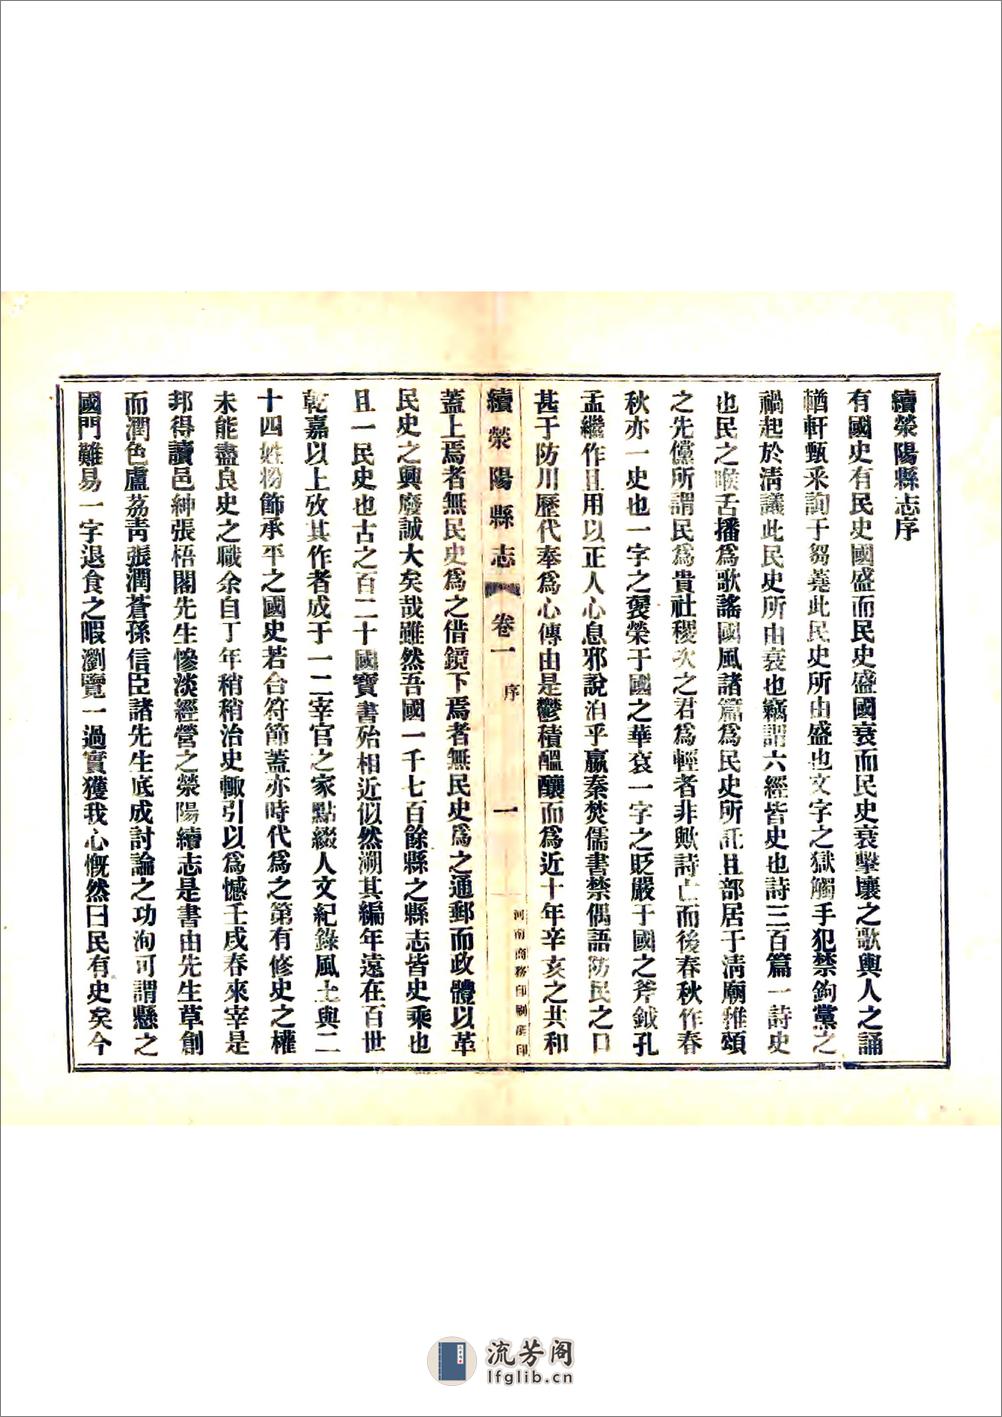 續滎陽縣志序
有國史有民史國盛而民史盛國衰而民史衰擊壤之歌輿人之誦
輶軒甄采詢于芻蕘此民史所由盛也文字之獄觸手犯禁鉤黨之
禍起於清議此民史所由衰也竊謂六經皆史也詩三百篇一詩史
也民之喉舌播為歌謠國風諸篇為民史所託且部居于清廟雅頌
之先儻所謂民為貴社稷次之君為輕者非歟詩亡而後春秋作春
秋亦一史也一字之褒榮于國之華衮一字之貶嚴于國之斧鉞孔
孟繼作且用以正人心息邪說洎乎嬴秦焚儒書禁偶語防民之口
甚于防川歷代奉為心傳由是鬱積醞釀而為近十年辛亥之共和
續滎陽縣志 卷一 序 一 河南商務印刷所印
蓋上焉者無民史為之借鏡下焉者無民史為之通郵而政體以革
民史之興廢誠大矣哉雖然吾國一千七百餘縣之縣志皆史乘也
且一民史也古之百二十國寶書殆相近似然溯其編年遠在百世
乾嘉以上攷其作者成于一二宰官之家點綴人文紀錄風土與二
十四姓粉飾承平之國史若合符節蓋亦時代為之第有修史之權
未能盡良史之職余自丁年稍稍治史輙引以為憾壬戌春來宰是
邦得讀邑紳張梧閣先生慘淡經營之滎陽續志是書由先生草創
而潤色盧荔靑張潤蒼孫信臣諸先生底成討論之功洵可謂懸之
國門難易一字退食之暇瀏覽一過實獲我心慨然曰民有史矣今
流芳阁
lfglib.cn